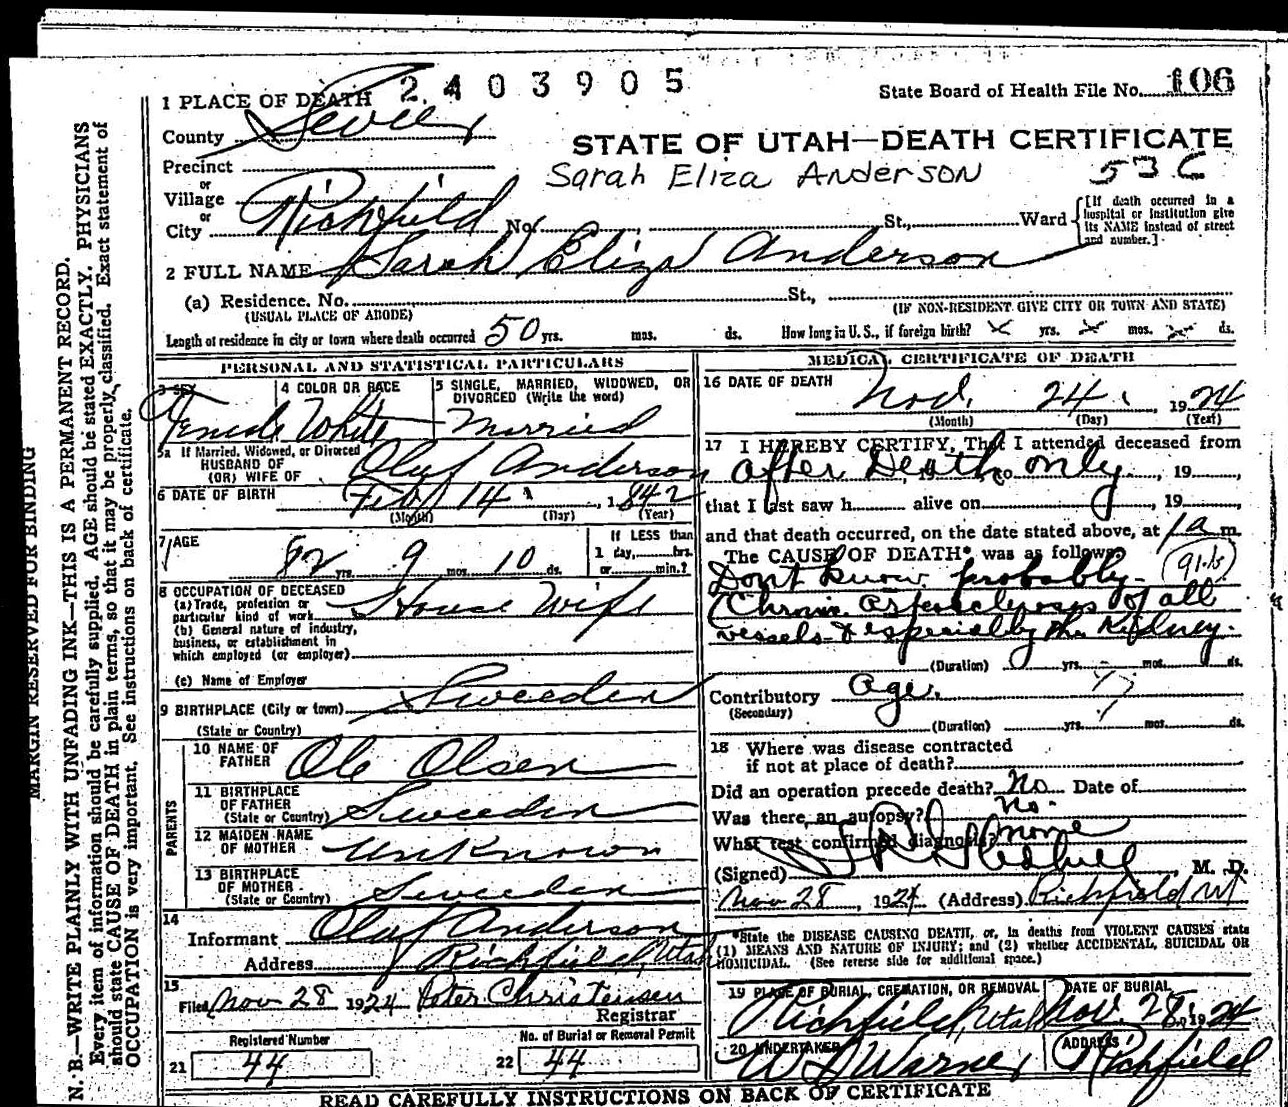 2403905
State Board of Health File No. 106
1 PLACE OF DEATH
County Sevier
STATE OF UTAH—DEATH CERTIFICATE
Precinct
Sarah Eliza Anderson 53 C
or
Village
or
City Richfield No. St., Ward
[If death occurred in a hospital or institution give its NAME instead of street and number.]
2 FULL NAME Sarah Eliza Anderson
(a) Residence. No. St.,
(USUAL PLACE OF ABODE) (IF NON-RESIDENT GIVE CITY OR TOWN AND STATE)
Length of residence in city or town where death occurred 50 yrs. mos. ds. How long in U.S., if foreign birth? x yrs. x mos. x ds.
PERSONAL AND STATISTICAL PARTICULARS
3 SEX 4 COLOR OR RACE 5 SINGLE, MARRIED, WIDOWED, OR DIVORCED (Write the word)
Female White Married
5a If Married, Widowed, or Divorced
HUSBAND OF
(OR) WIFE OF Oluf Anderson
6 DATE OF BIRTH Feb 14 1842
(Month) (Day) (Year)
7 AGE 82 yrs. 9 mos. 10 ds.
If LESS than
1 day,......hrs.
or......min.?
8 OCCUPATION OF DECEASED
(a) Trade, profession or
particular kind of work House Wife
(b) General nature of industry,
business, or establishment in
which employed (or employer)
(c) Name of Employer
9 BIRTHPLACE (City or town) Sweeden
(State or Country)
PARENTS
10 NAME OF
FATHER Ole Olsen
11 BIRTHPLACE
OF FATHER
(State or Country) Sweeden
12 MAIDEN NAME
OF MOTHER Unknown
13 BIRTHPLACE
OF MOTHER
(State or Country) Sweeden
14
Informant Oluf Anderson
Address Richfield, Utah
15
Filed Nov 28 1924 Peter Christensen
Registrar
Registered Number No. of Burial or Removal Permit
21 44 22 44
MEDICAL CERTIFICATE OF DEATH
16 DATE OF DEATH Nov. 24, 1924
(Month) (Day) (Year)
17 I HEREBY CERTIFY, That I attended deceased from
after Death, 19 , to only, 19 ,
that I last saw h alive on , 19
and that death occurred, on the date stated above, at 1 a m.
The CAUSE OF DEATH* was as follows:
Dont know probably (91.b)
Chronic Arteriosclerosis of all
vessels & especially the Kidney.
(Duration) yrs. mos. ds.
Contributory Age.
(Secondary)
(Duration) yrs. mos. ds.
18 Where was disease contracted
if not at place of death?
Did an operation precede death? No Date of
Was there an autopsy? no.
What test confirmed diagnosis? none
(Signed) M. D.
Nov 28, 1924 (Address) Richfield Ut
*State the DISEASE CAUSING DEATH, or, in deaths from VIOLENT CAUSES state
(1) MEANS AND NATURE OF INJURY; and (2) whether ACCIDENTAL, SUICIDAL OR
HOMICIDAL. (See reverse side for additional space.)
19 PLACE OF BURIAL, CREMATION, OR REMOVAL DATE OF BURIAL
Richfield, Utah Nov. 28, 1924
20 UNDERTAKER ADDRESS
Warner Richfield
READ CAREFULLY INSTRUCTIONS ON BACK OF CERTIFICATE
MARGIN RESERVED FOR BINDING
N. B.—WRITE PLAINLY WITH UNFADING INK—THIS IS A PERMANENT RECORD.
Every item of information should be carefully supplied. AGE should be stated EXACTLY. PHYSICIANS
should state CAUSE OF DEATH in plain terms, so that it may be properly classified. Exact statement of
OCCUPATION is very important. See instructions on back of certificate.